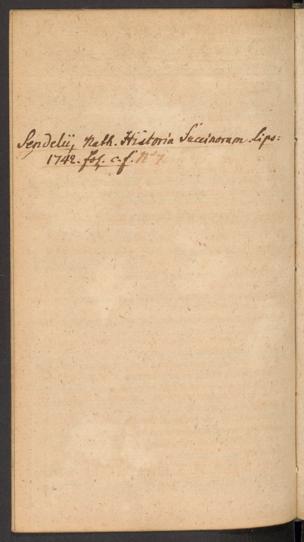 Sendelii, Nath. Historia Succinorum. Lips:
1742. fol. c. f. N° 7.